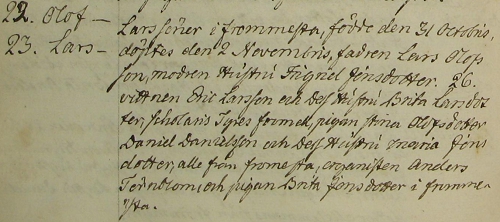 22. Olof —
23. Lars —
Larssöner i frommesta, födde den 31 Octobris,
döptes den 2 Novembris, fadren Lars Olofs
son, modren Hustru Jonsdotter. 26.
vittnen Eric Larsson och Dess Hustru Brita Larsdot
ter, Scholaris pigan Stina Olofsdotter
Daniel Danielsson och Dess Hustru Maria Jöns
dotter, alle från fromesta, organisten Anders
Ternblom, och pigan Brita Jönsdotter i fromme-
sta.